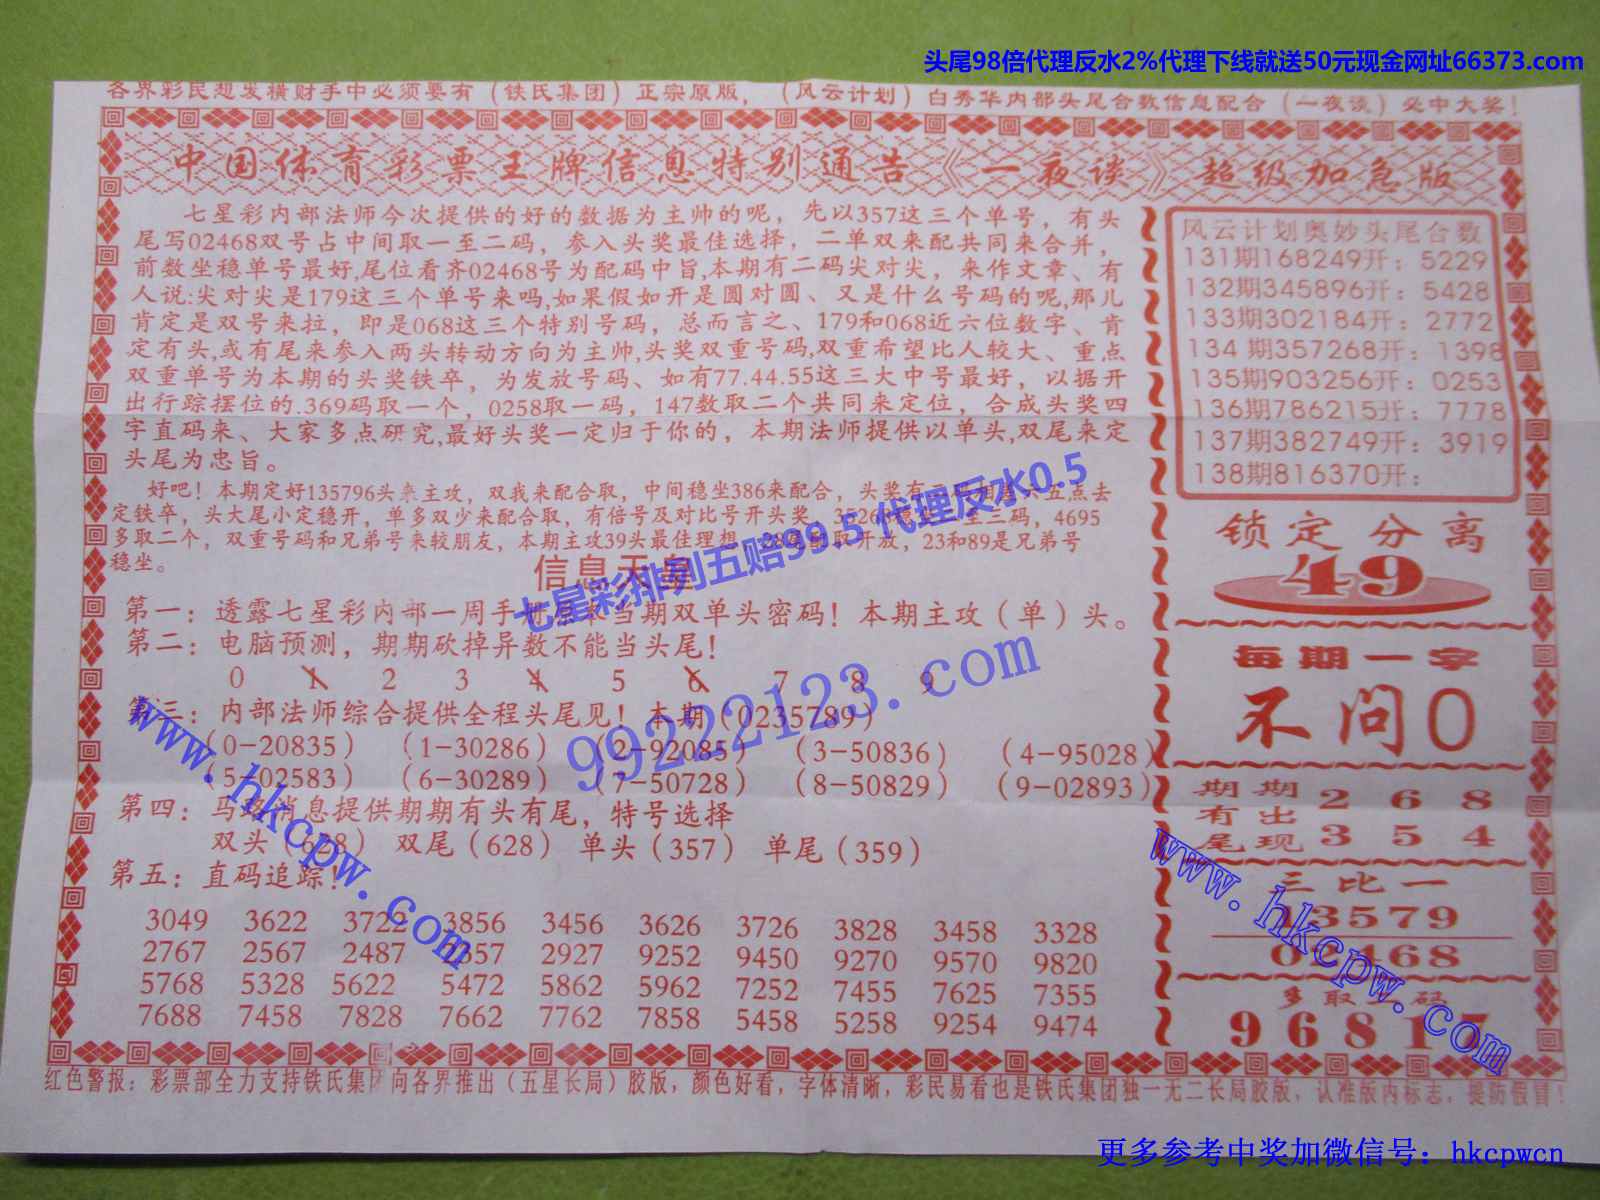 头尾98倍代理反水2%代理下线就送50元现金网址66373.com
各界彩民想发横财手中必须要有（铁氏集团）正宗原版，（风云计划）白秀华内部头尾合数信息配合（一夜谈）必中大奖！
中国体育彩票王牌信息特别通告《一夜谈》超级加急版
七星彩内部法师今次提供的好的数据为主帅的呢，先以357这三个单号，有头
尾写02468双号占中间取一至二码，参入头奖最佳选择，二单双来配共同来合并，
前数坐稳单号最好,尾位看齐02468号为配码中旨,本期有二码尖对尖，来作文章、有
人说:尖对尖是179这三个单号来吗,如果假如开是圆对圆、又是什么号码的呢,那儿
肯定是双号来拉，即是068这三个特别号码，总而言之、179和068近六位数字、肯
定有头,或有尾来参入两头转动方向为主帅,头奖双重号码,双重希望比人较大、重点
双重单号为本期的头奖铁卒，为发放号码、如有77.44.55这三大中号最好，以据开
出行踪摆位的.369码取一个，0258取一码，147数取二个共同来定位，合成头奖四
字直码来、大家多点研究,最好头奖一定归于你的，本期法师提供以单头,双尾来定
头尾为忠旨。
好吧！本期定好135796头来主攻，双我来配合取，中间稳坐386来配合，头奖有二码相差六五点去
定铁卒，头大尾小定稳开，单多双少来配合取，有倍号及对比号开头奖，35268稳坐二至三码，4695
多取二个，双重号码和兄弟号来较朋友，本期主攻39头最佳理想，28尾配取开放，23和89是兄弟号
稳坐。
信息天皇
第一：透露七星彩内部一周手册原本当期双单头密码！本期主攻（单）头。
第二：电脑预测，期期砍掉异数不能当头尾！
0 1 2 3 4 5 6 7 8 9
第三：内部法师综合提供全程头尾见！本期（0235789）
（0-20835） （1-30286） （2-92085） （3-50836） （4-95028）
（5-02583） （6-30289） （7-50728） （8-50829） （9-02893）
第四：马路消息提供期期有头有尾，特号选择
双头（628） 双尾（628） 单头（357） 单尾（359）
第五：直码追踪！
3049 3622 3722 3856 3456 3626 3726 3828 3458 3328
2767 2567 2487 2357 2927 9252 9450 9270 9570 9820
5768 5328 5622 5472 5862 5962 7252 7455 7625 7355
7688 7458 7828 7662 7762 7858 5458 5258 9254 9474
风云计划奥妙头尾合数
131期168249开：5229
132期345896开：5428
133期302184开：2772
134期357268开：1398
135期903256开：0253
136期786215开：7778
137期382749开：3919
138期816370开：
锁定分离
49
每期一字
不问0
期期 2 6 8
有出
尾现 3 5 4
三比一
13579
02468
多取 码
96817
红色警报：彩票部全力支持铁氏集团向各界推出（五星长局）胶版，颜色好看，字体清晰，彩民易看也是铁氏集团独一无二长局胶版，认准版内标志，提防假冒！
七星彩排列五赔99.5 代理反水0.5
99222123.com
www.hkcpw.com
www.hkcpw.com
更多参考中奖加微信号：hkcpwcn